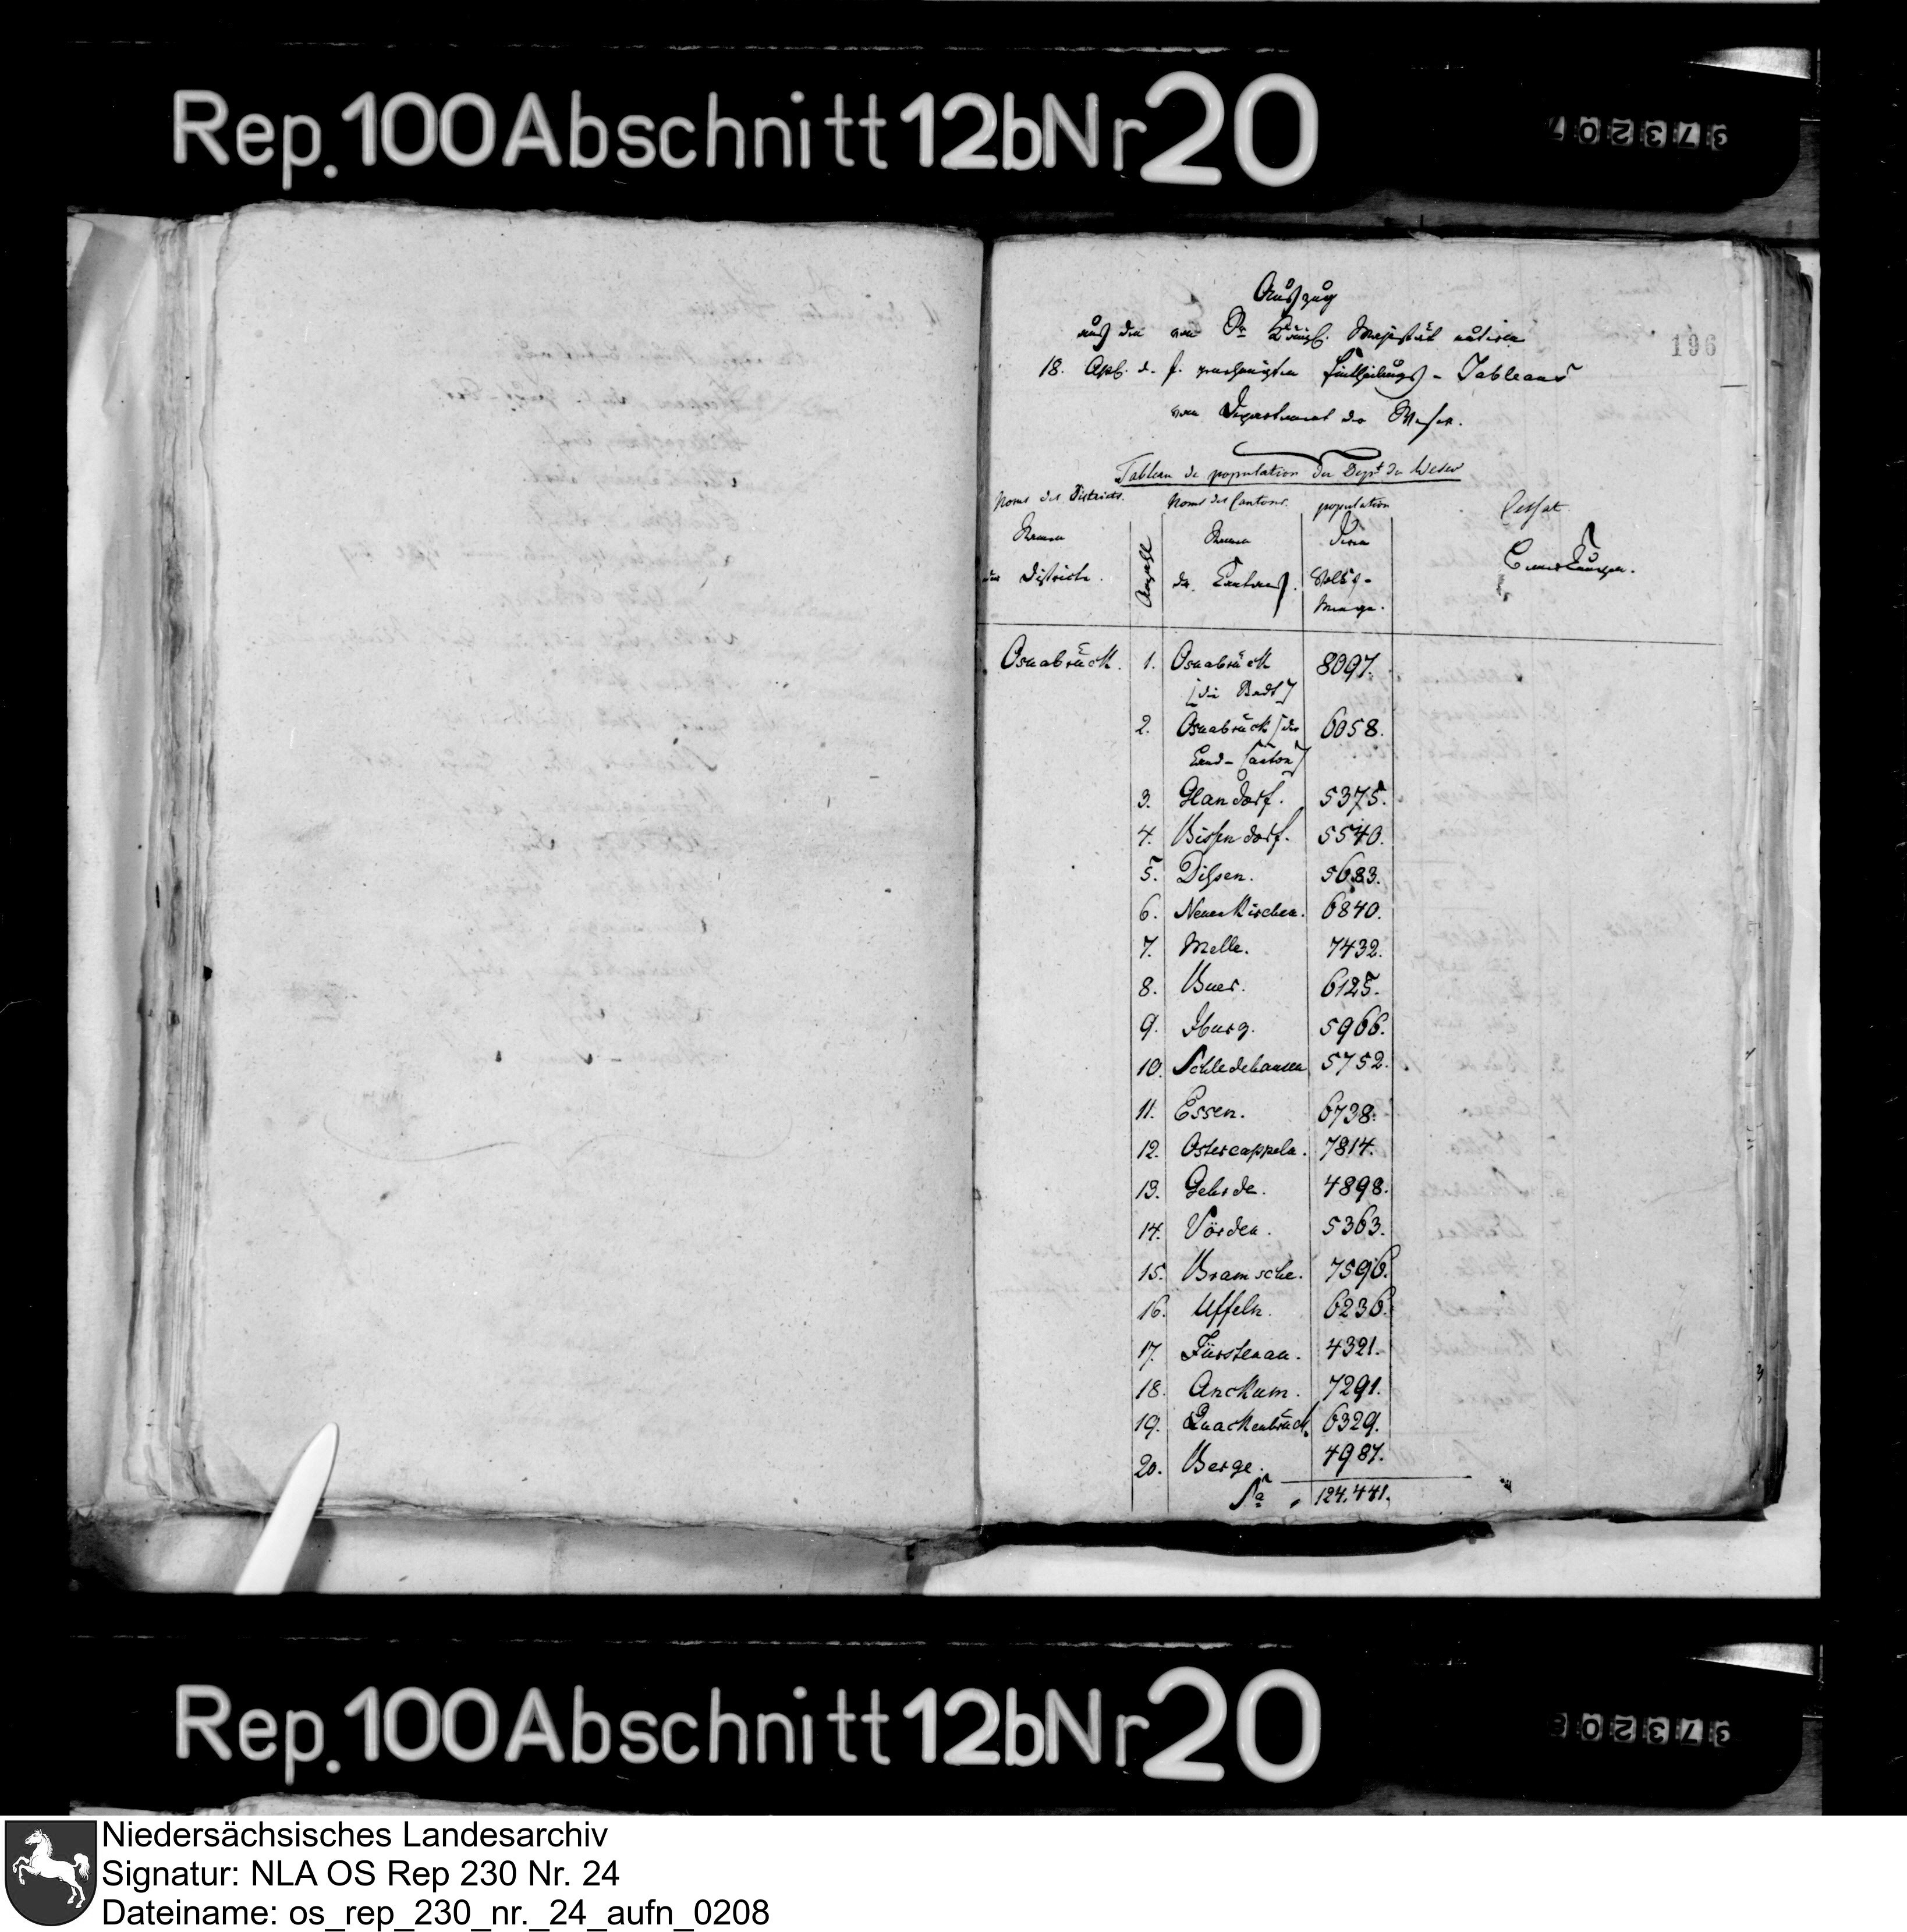 Rep. 100 Abschnitt 12b Nr 20
973207
196
Auszug
aus den von Sr Königl. Majestät unterm
18. Apl. d. J. genehmigten Eintheilungs-Tableaus
vom Departement der Weser.
Tableau de population du Dept du Weser
Noms des Districts. Noms des Cantons. population
Namen Namen Deren
der Districte. Anzahl der Cantons. Volks-
Menge.
Bemerkungen.
Osnabrück. 1. Osnabrück 8097.
[die Stadt]
2. Osnabrück [der 6058.
Land-Canton]
3. Glandorf. 5375.
4. Bissendorf. 5540.
5. Dissen. 5683.
6. Neuenkirchen. 6840.
7. Melle. 7432.
8. Buer. 6125.
9. Iburg. 5966.
10. Schledehausen 5752.
11. Essen. 6738.
12. Ostercappeln. 7814.
13. Gehrde. 4898.
14. Vörden. 5363.
15. Bramsche. 7596.
16. Uffeln. 6236.
17. Fürstenau. 4321.
18. Anckum. 7291.
19. Quackenbrück. 6329.
20. Berge. 4987.
Sa. 124,441.
Rep. 100 Abschnitt 12b Nr 20
Niedersächsisches Landesarchiv
Signatur: NLA OS Rep 230 Nr. 24
Dateiname: os_rep_230_nr._24_aufn_0208